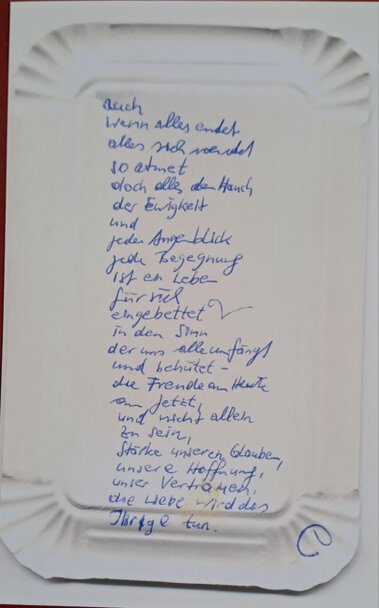 auch
wenn alles endet
alles sich wendet
so atmet
doch alles den Hauch
der Ewigkeit
und
jeder Augenblick
jede Begegnung
ist ein Leben
für sich
eingebettet
in den Sinn
der uns alle umfängt
und behütet -
die Freude am Heute
am Jetzt,
und nicht allein
zu sein,
stärke unseren Glauben,
unsere Hoffnung,
unser Vertrauen,
die Liebe wird das
Ihrige tun.